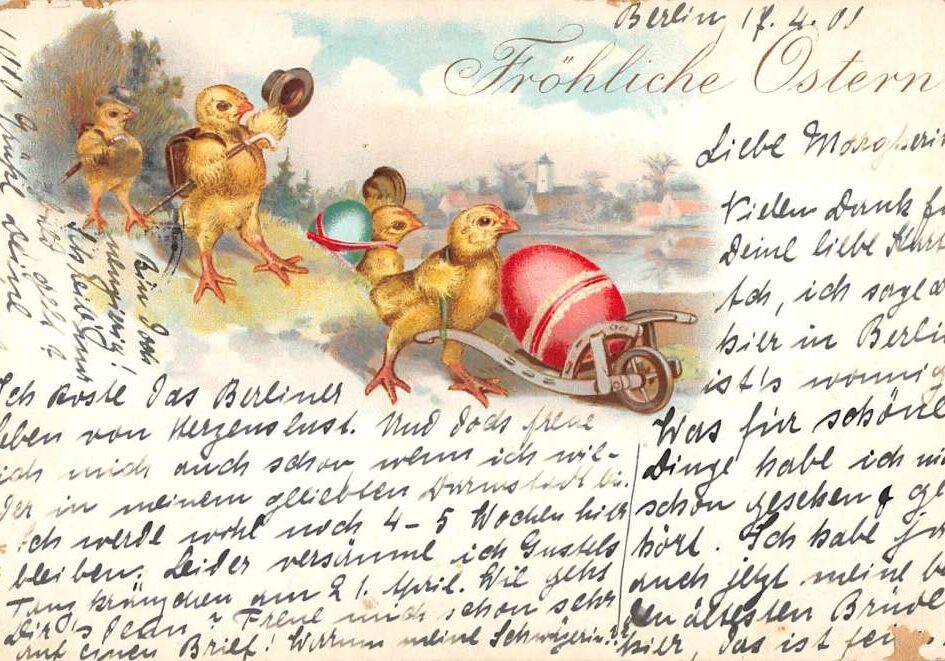 Berlin 17. 4. 01
Fröhliche Ostern
Liebe Margheri
Vielen Dank f
Deine liebe Kar
Ach, ich sage
hier in Berlin
ist's wonnig
Was für schöne
Dinge habe ich
schon gesehen & ge
hört. Ich habe ja
auch jetzt meine be
den ältesten Brüde
hier, das ist fein
Ich koste das Berliner
Leben von Herzenslust. Und doch freue
ich mich auch schon, wenn ich wie-
der in meinem geliebten Darmstadt bin.
Ich werde wohl noch 4-5 Wochen hier
bleiben. Leider versäume ich Gustels
Tanzkränzchen am 21. April. Wie geht
Dir's denn? Freue mich schon sehr
auf einen Brief! Warum meine Schwägerin??
Bin doch
neugierig!